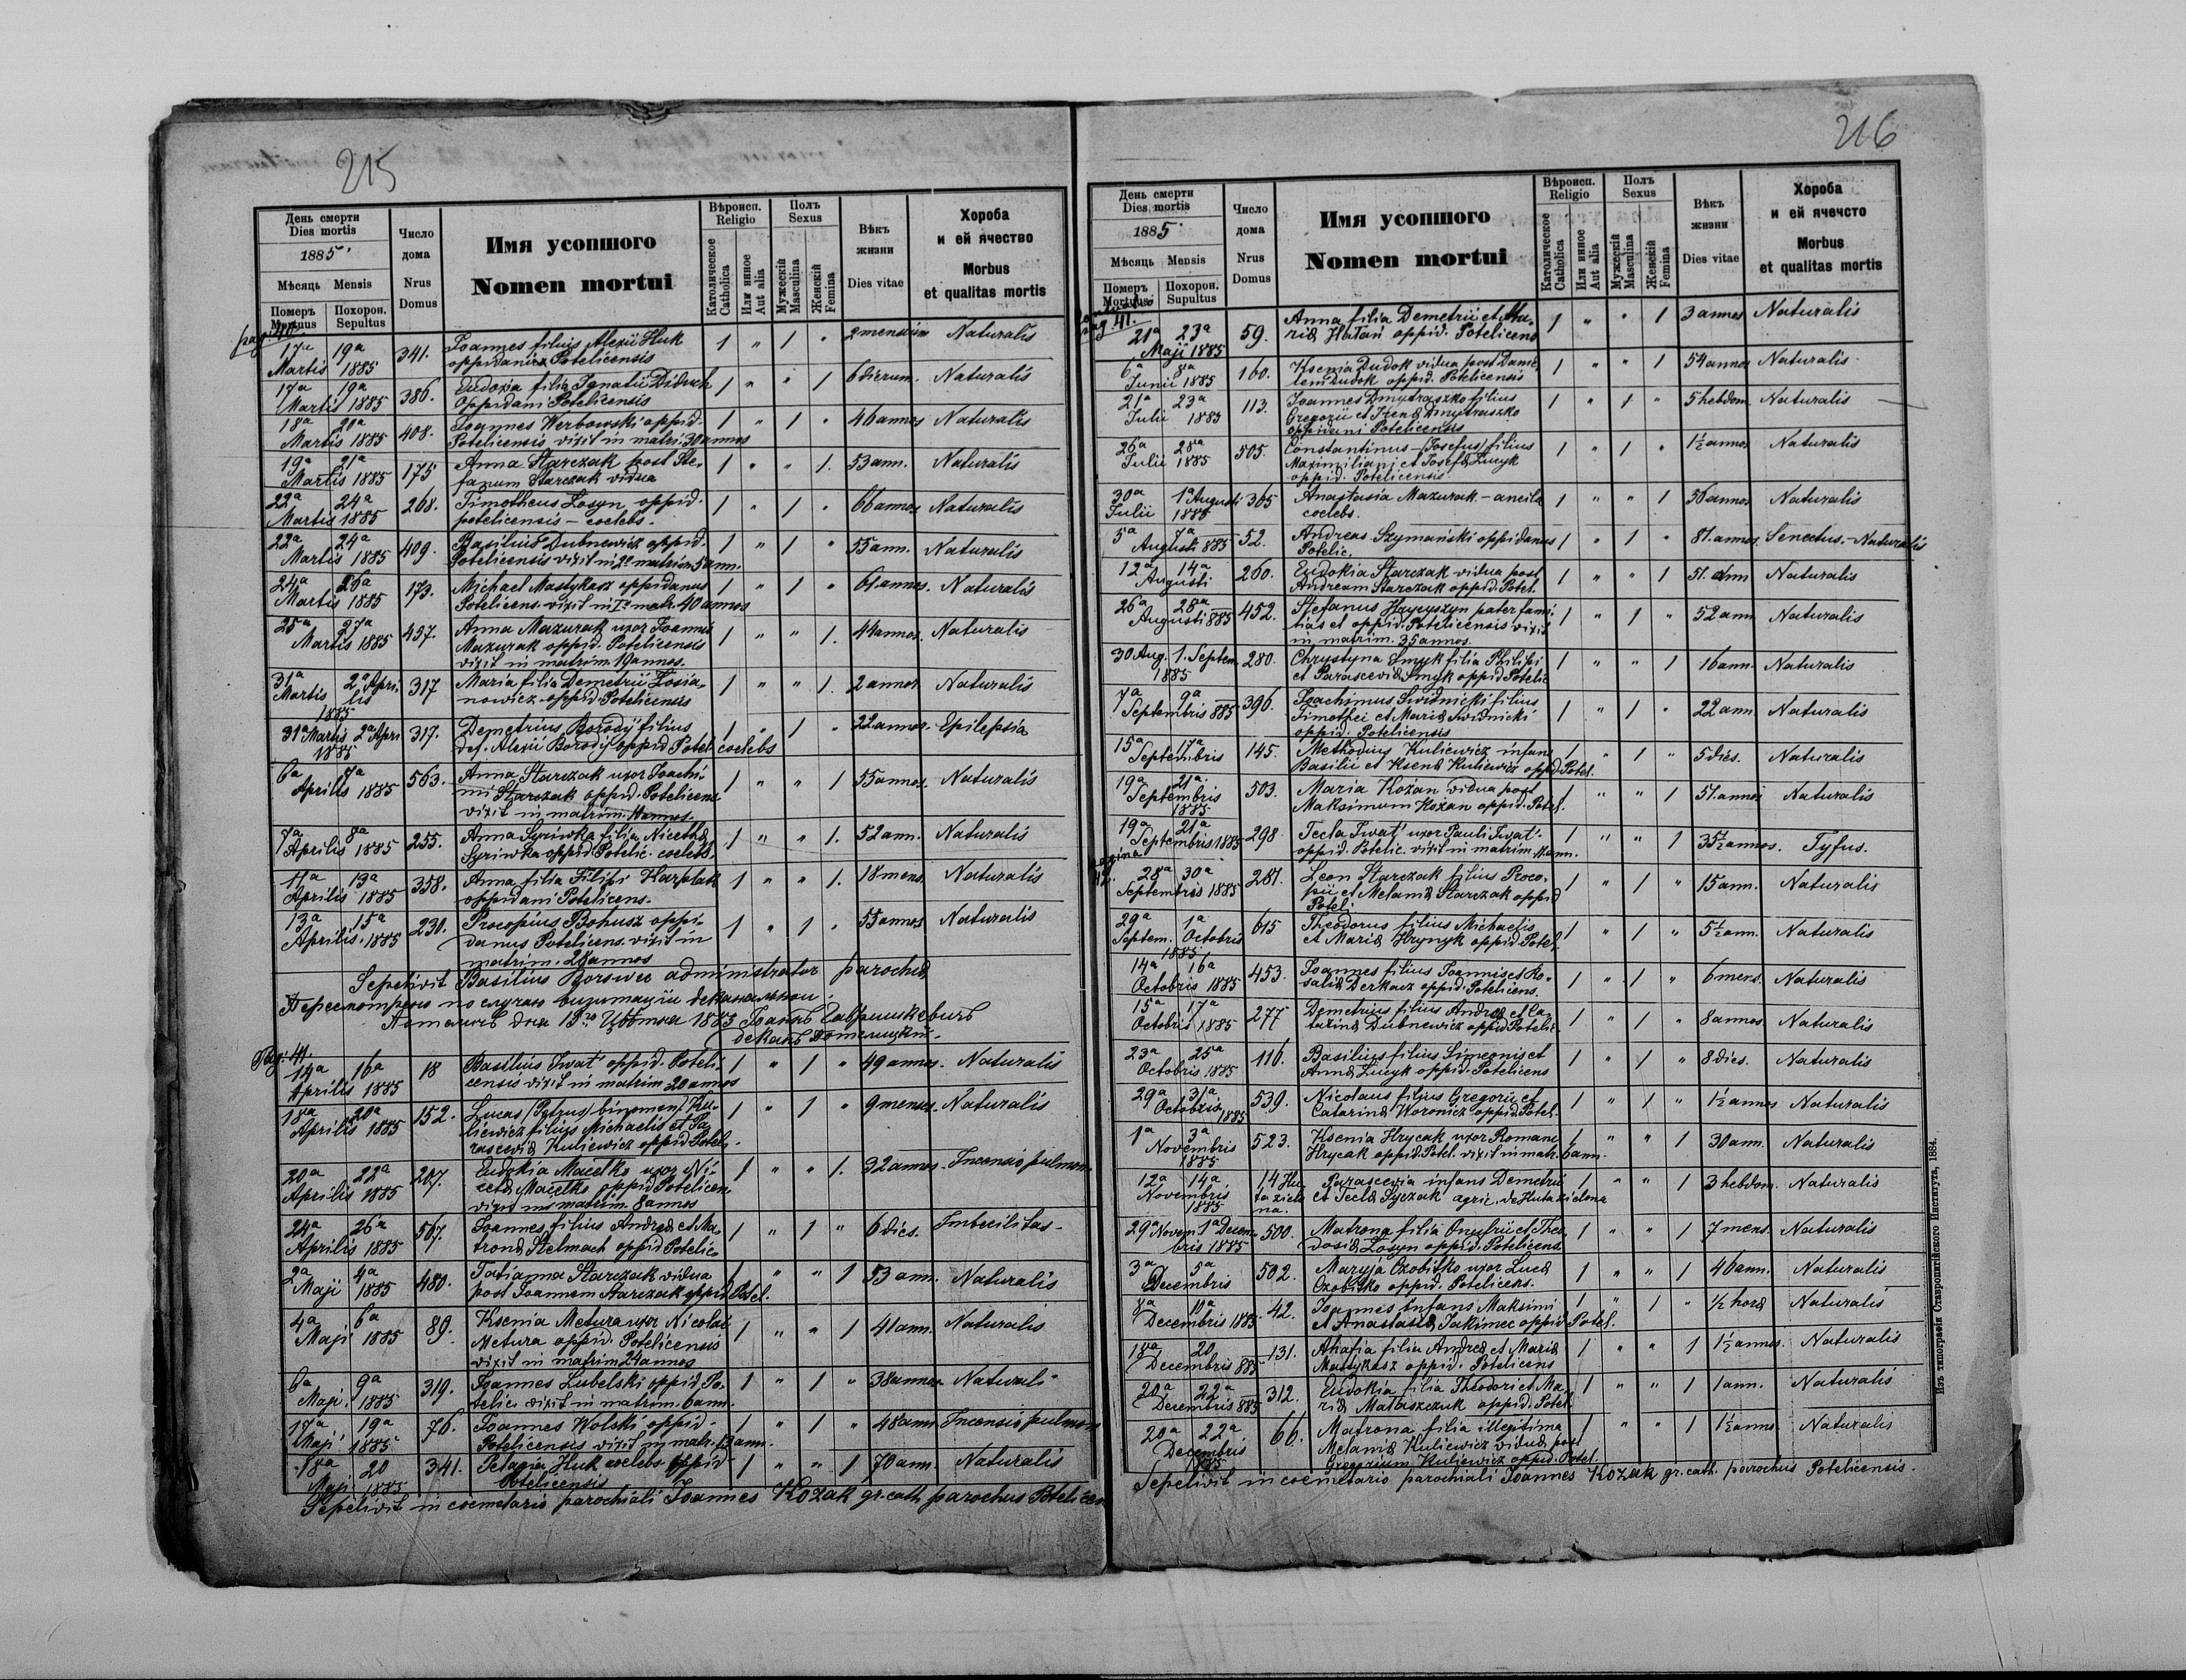 215
День смерти
Dies mortis
1885.
Мѣсяць Mensis
Померъ
Mortuus
Похорон.
Sepultus
Число
дома
Nrus
Domus
Имя усопшого
Nomen mortui
Вѣроисп.
Religio
Католическое
Catholica
Или инное
Aut alia
Полъ
Sexus
Мужескій
Masculina
Женскій
Femina
Вѣкъ
жизни
Dies vitae
Хороба
и ей ячество
Morbus
et qualitas mortis
17a 19a 341. Joannes filius Alexii Huk 1 " 1 " 2 mensium Naturalis
Martis 1885 oppidani Potelicensis
17a 19a 386. Eudoxia filia Ignatii Diduch 1 " " 1 6 dierum. Naturalis
Martis 1885 Oppidani Potelicensis
18a 20a 408. Joannes Werbowski oppid. 1 " 1 " 46 annos Naturalis
Martis 1885 Potelicensis vixit in matri. 30 annos
19a 21a 175 Anna Starczak post Ste- 1 " " 1. 53 ann. Naturalis
Martis 1885 fanum Starczak vidua
22a 24a 268. Timotheus Losyn oppid. 1 " 1 " 66 annos Naturalis
Martis 1885 potelicensis – coelebs.
22a 24a 409. Basilius Dubnewicz oppid. 1 " 1 " 55 ann. Naturalis
Martis 1885 Potelicensis vixit in 2o matrim 5 ann.
24a 26a 173. Michael Mastykasz oppidanus 1 " 1 " 61 annos. Naturalis
Martis 1885 Potelicens. vixit in 1o matr. 40 annos
25a 27a 437. Anna Mazurak uxor Joannis 1 " " 1. 44 annos. Naturalis
Martis 1885 Mazurak oppid. Potelicensis
vixit in matrim. 19 annos.
31a 2a Apri 317 Maria filia Demetrii Zosia- 1 " " 1. 2 annos Naturalis
Martis lis nowicz oppid. Potelicensis
1885
31a Martis 2a Apri 317. Demetrius Borodij filius 1 " 1 " 22 annos. Epilepsia
1885 def. Alexii Borodij oppid Potel. coelebs
6a 7a 563. Anna Starczak uxor Joachi- 1 " " 1 55 annos. Naturalis
Aprilis 1885 mi Starczak oppid. Potelicens.
vixit in matrim. annos.
7a 8a 255. Anna Syriwka filia Nicetae 1 " " 1. 52 ann. Naturalis
Aprilis 1885 Syriwka oppid. Potelic. coelebs
11a 13a 358. Anna filia Filipi Karplak 1 " " 1. 18 mens. Naturalis
Aprilis 1885 oppidani Potelicens.
13a 15a 230. Procopius Bohusz oppi- 1 " 1 " 55 annos Naturalis
Aprilis. 1885 danus Potelicens. vixit in
matrim. 28 annos
Sepelivit Basilius Borowec administrator parochiae
Пересмотрено по случаю визитаціи деканальнои.
Потеличъ дня 1885 Іоаннъ
деканъ Потелицкій.
Pag. 41.
14a 16a 18 Basilius Iwat' oppid. Poteli- 1 " 1 " 49 annos. Naturalis
Aprilis 1885 censis vixit in matrim 20 annos
18a 20a 152. Lucas (Petrus) binomen/ Ku- 1 " 1 " 9 menses. Naturalis
Aprilis 1885 liewicz filius Michaelis et Pa-
rasceviae Kuliewicz oppid Potel.
20a 22a 207. Eudokia Macelko uxor Ni- 1 " " 1. 32 annos. Incensio pulmon
Aprilis 1885 cetae Macelko oppid Potelicen.
vixit in matrim. 8 annos
24a 26a 567. Joannes filius Andreae et Ma- 1 " 1 " 6 dies. Imbecilitas.
Aprilis 1885 tronae Stelmach oppid Potelic.
2a 4a 480. Tatianna Starczak vidua 1 " " 1 53 ann. Naturalis
Maji 1885 post Joannem Starczak oppid Potel.
4a 6a 89. Ksenia Metura uxor Nicolai 1 " " 1 41 ann. Naturalis
Maji 1885 Metura oppid. Potelicensis
vixit in matrim 24 annos
6a 9a 319. Joannes Lubelski oppid. Po- 1 " 1 " 38 annos. Naturali
Maji. 1885 telic. vixit in matrim. 6 ann.
17a 19a 76. Joannes Wolski oppid. 1 " 1 " 48 ann. Incensio pulmon
Maji 1885 Potelicensis vixit in matr. 13 ann.
18a 20 341. Pelagia Huk coelebs oppid. 1 " " 1 70 ann. Naturalis
Maji 1885 Potelicensis
Sepelivit in coemetario parochiali Joannes Kozak gr. cath. parochus Potelicen
216
День смерти
Dies mortis
1885
Мѣсяць Mensis
Померъ
Mortuus
Похорон.
Supultus
Число
дома
Nrus
Domus
Имя усопшого
Nomen mortui
Вѣроисп.
Religio
Католическое
Catholica
Или инное
Aut alia
Полъ
Sexus
Мужескій
Masculina
Женскій
Femina
Вѣкъ
жизни
Dies vitae
Хороба
и ей ячечсто
Morbus
et qualitas mortis
pag 41.
21a 23a 59. Anna filia Demetrii et Ma- 1 " " 1 3 annos Naturalis
Maji 1885 riae Hatan oppid. Potelicens
6a 8a 160. Ksenia Dudok vidua post Dani- 1 " " 1 54 annos Naturalis
Junii 1885 lem Dudok oppid. Potelicensis
21a 23a 113. Joannes Dmytraszko filius 1 " 1 " 5 hebdom Naturalis
Julii 1885 Gregorii et Irenae Dmytraszko
oppidani Potelicensis
26a 28a 505. Constantinus (Josefus) filius 1 " 1 " 1½ annos Naturalis
Julii 1885 Maximiliani et Josefae Lucyk
oppid. Potelicensis
30a 1a Augusti 365 Anastasia Mazurak – ancila 1 " " 1 56 annos Naturalis
Julii 1885 coelebs.
5a 7a 52. Andreas Szymański oppidanus 1 " 1 " 81. annos Senectus.– Naturalis
Augusti 885 Potelic.
12a 14a 260. Eudokia Starczak vidua post 1 " " 1 51. ann Naturalis
Augusti Andream Starczak oppid. Potel.
26a 28a 452. Stefanus Hrycyszyn pater fami- 1 " 1 " 52 ann Naturalis
Augusti 885 lias et oppid. Potelicensis vixit
in matrim. 35 annos.
30 Aug. 1. Septem. 280. Chrystyna Smyk filia Philipi 1 " " 1 16 ann. Naturalis
1885 et Parasceviae Smyk oppid Potelic
7a 9a 396. Joachimus Swidnicki filius 1 " 1 " 22 ann. Naturalis
Septembris 885 Timothei et Mariae Swidnicki
oppid. Potelicensis
15a 17a 145. Methodius Kuliewicz infans 1 " 1 " 5 dies. Naturalis
Septembris Basilii et Ksenae Kuliewicz oppid. Potel.
19a 21a. 503. Maria Kozan vidua post 1 " " 1 51. annos Naturalis
Septembris Maksimum Kozan oppid. Potel.
1885
19a 21a 298 Tecla Iwat' uxor Pauli Iwat'. 1 " " 1 35½ annos. Tyfus.
Septembris 1885 oppid. Potelic. vixit in matrim. ann.
28a 30a 281. Leon Starczak filius Proco- 1 " 1 " 15 ann. Naturalis
Septembris 1885 pii et Melaniae Starczak oppid
Poteli.
29a 1a 615 Theodorus filius Michaelis 1 " 1 " 5½ ann. Naturalis
Septem. Octobris et Mariae Hrynyk oppid Potel.
1885
14a 16a 453. Joannes filius Joannis et Ro- 1 " 1 " 6 mens. Naturalis
Octobris 1885 saliae Derkacz oppid. Potelicens.
15a 17a 277 Demetrius filius Andreae et Ca- 1 " 1 " 8 annos Naturalis
Octobris 1885 tarinae Dubnewicz oppid Potelic
23a 25a 116. Basilius filius Simeonis et 1 " 1 " 8 dies. Naturalis
Octobris 1885 Annae Lucyk oppid. Potelicens
29a 31a 539. Nicolaus filius Gregorii et 1 " 1 " 1½ annos Naturalis
Octobris 1885 Catarinae Woronicz oppid. Potel.
1a 3a 523. Ksenia Hrycak uxor Romani 1 " " 1 30 ann. Naturalis
Novembris Hrycak oppid. Potel. vixit in matr. 6 ann.
1885
12a 14a. 14 Hu- Parascevia infans Demetrii 1 " " 1 3 hebdom. Naturalis
Novembris ta ziele et Teclae Syczak agric. de Huta zielona
1885 na.
29a Novem. 1a Decem- 500. Matrona filia Onufrii et Theo- 1 " " 1 7 mens. Naturalis
bris 1885 dosiae Losyn oppid. Potelicens.
3a 5a 502. Maryja Ozobitko uxor Lucae 1 " " 1 46 ann. Naturalis
Decembris Ozobitko oppid. Potelicens.
8a 10a 42. Joannes infans Maksimi 1 " 1 " ½ horae Naturalis
Decembris 1885. et Anastasiae Jakimec oppid Potel.
18a 20 131. Ahafia filia Andreae et Mariae 1 " " 1 1½ annos. Naturalis
Decembris 885 Mastykasz oppid. Potelicens
20a 22a 312. Eudokia filia Theodori et Ma- 1 " " 1 1 ann. Naturalis
Decembris 885 riae Mataszczuk oppid. Potel.
20a 22a. 66. Matrona filia illegitima 1 " " 1 1½ annos Naturalis
Decembris Melaniae Kuliewicz viduae post
1885 Gregorium Kuliewicz oppid. Potel.
Sepelivit in coemetario parochiali Joannes Kozak gr. cath. parochus Potelicensis.
Изъ типографіи Ставропигійского Института, 1884.